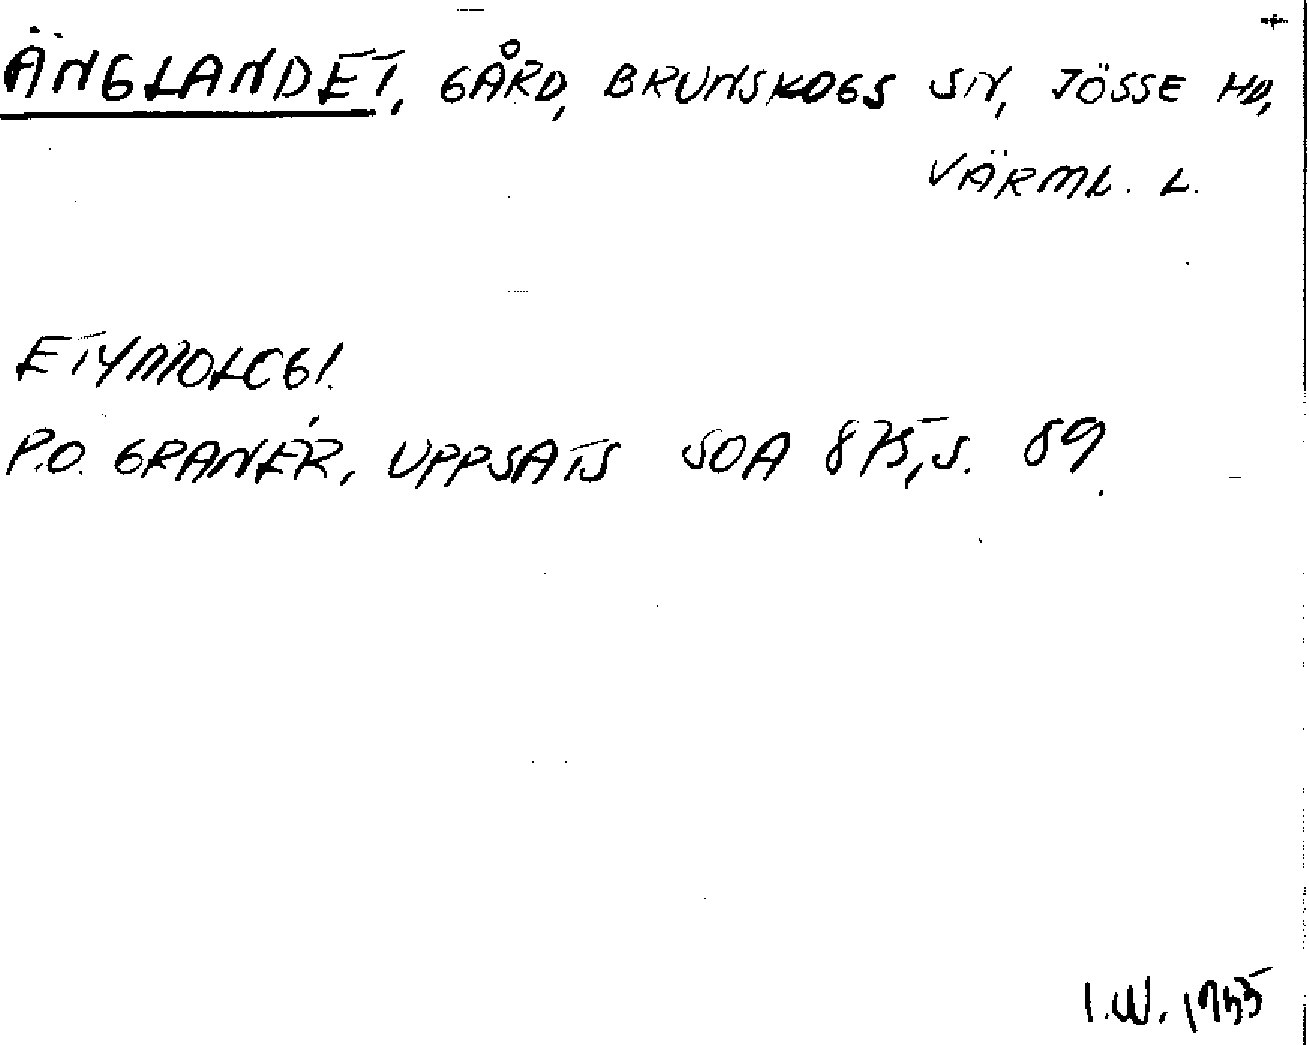 ÄNGLANDET, GÅRD, BRUNSKOGS SN, JÖSSE HD,
VÄRML. L.
ETYMOLOGI.
P.O. GRANÉR, UPPSATS SOA 875, S. 89.
I.W. 1955